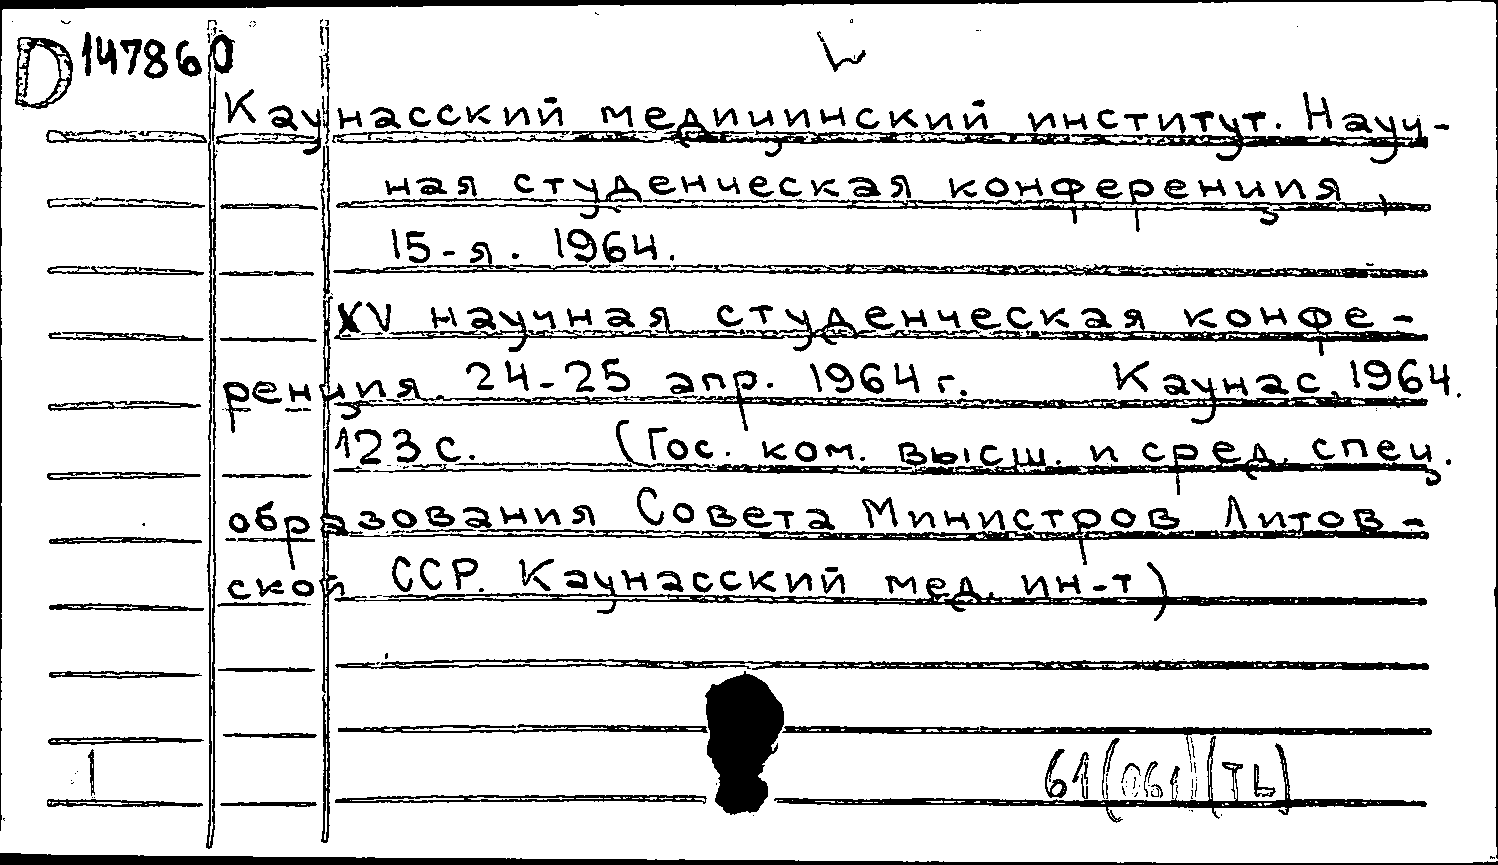 D 147860
Каунасский медицинский институт. Науч-
ная студенческая конференция,
15-я. 1964.
XV научная студенческая конфе-
ренция. 24-25 апр. 1964 г. Каунас, 1964.
123 с. (Гос. ком. высш. и сред. спец.
образования Совета Министров Литов-
ской ССР. Каунасский мед. ин-т)
1
61(061)(TL)